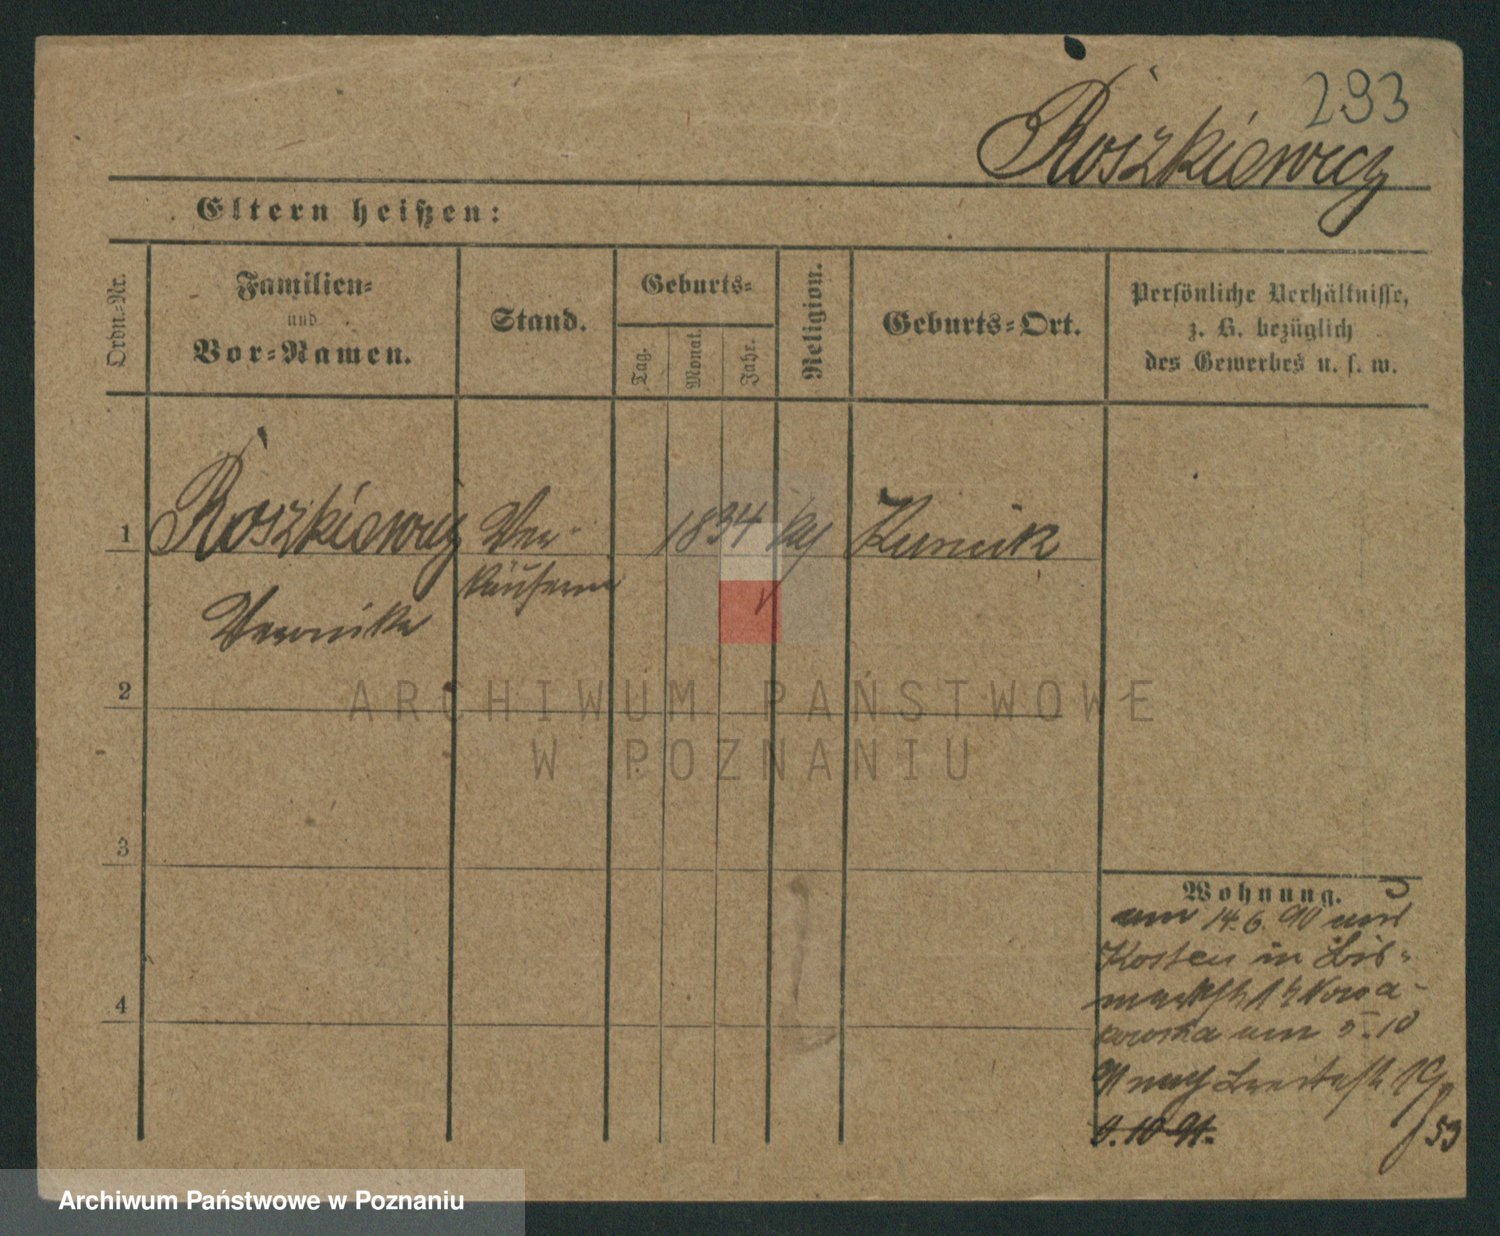 293
Roszkiewicz
Eltern heißen:
Ordn.-Nr.
Familien-
und
Vor-Namen.
Stand.
Geburts-
Tag.
Monat.
Jahr.
Religion.
Geburts-Ort.
Persönliche Verhältnisse,
z. B. bezüglich
des Gewerbes u. s. w.
1 Roszkiewicz Ver- 1834 Kurnik
käuferin
Veronika
2
3
4
ARCHIWUM PAŃSTWOWE
W POZNANIU
Wohnung.
am 14.6.90 aus
Kosten in Bis-
am 5.10
91 nach Breitestr. 19
9.10.91.
/53
Archiwum Państwowe w Poznaniu